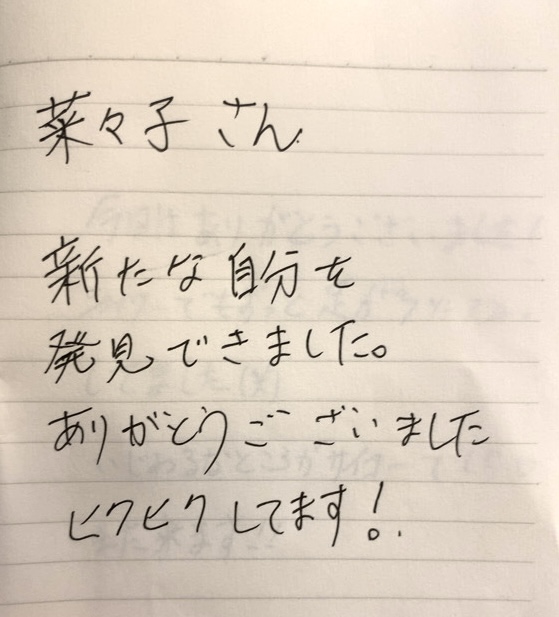 菜々子さん
新たな自分を
発見できました。
ありがとうございました
ヒクヒクしてます!